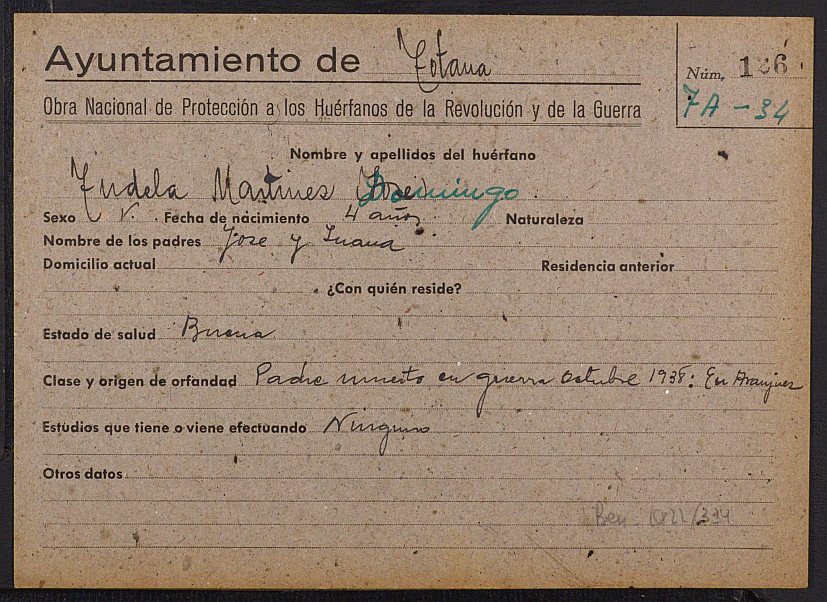 Ayuntamiento de Totana
Núm. 126
7A - 34
Obra Nacional de Protección a los Huérfanos de la Revolución y de la Guerra
Nombre y apellidos del huérfano
Tudela Martines Domingo
Sexo V. Fecha de nacimiento 4 años Naturaleza
Nombre de los padres Jose y Juana
Domicilio actual Residencia anterior
¿Con quién reside?
Estado de salud Buena
Clase y origen de orfandad Padre muerto en guerra octubre 1938: En Aranjuez
Estudios que tiene o viene efectuando Ninguno
Otros datos
Ben. /334